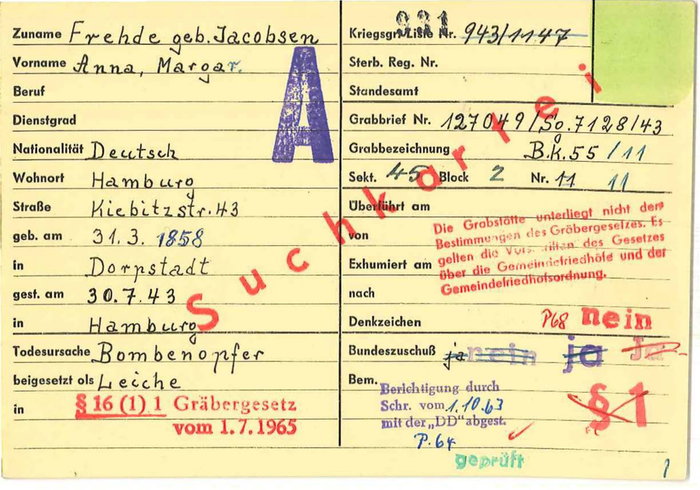 Zuname Frehde geb. Jacobsen
Vorname Anna, Margar.
A
Beruf
Dienstgrad
Nationalität Deutsch
Wohnort Hamburg
Straße Kiebitzstr. 43
geb. am 31.3. 1858
in Dorpstadt
gest. am 30.7.43
in Hamburg
Todesursache Bombenopfer
beigesetzt als Leiche
in § 16 (1) 1 Gräbergesetz
vom 1.7.1965
Suchkartei
931
Kriegsgr. Liste Nr. 943/1147
Sterb. Reg. Nr.
Standesamt
Grabbrief Nr. 127049/So.7128/43
Grabbezeichnung B.K.55/11
Sekt. 45 Block 2 Nr. 11 11
Überführt am
von
Die Grabstätte unterliegt nicht den
Bestimmungen des Gräbergesetzes. Es
gelten die Vorschriften des Gesetzes
über die Gemeindefriedhöfe und der
Gemeindefriedhofsordnung.
Exhumiert am
nach
Denkzeichen P68 nein
Bundeszuschuß ja nein ja Ja
Bem.
Berichtigung durch
Schr. vom 1.10.63
mit der „DD" abgest.
P.64
§ 1
geprüft
1